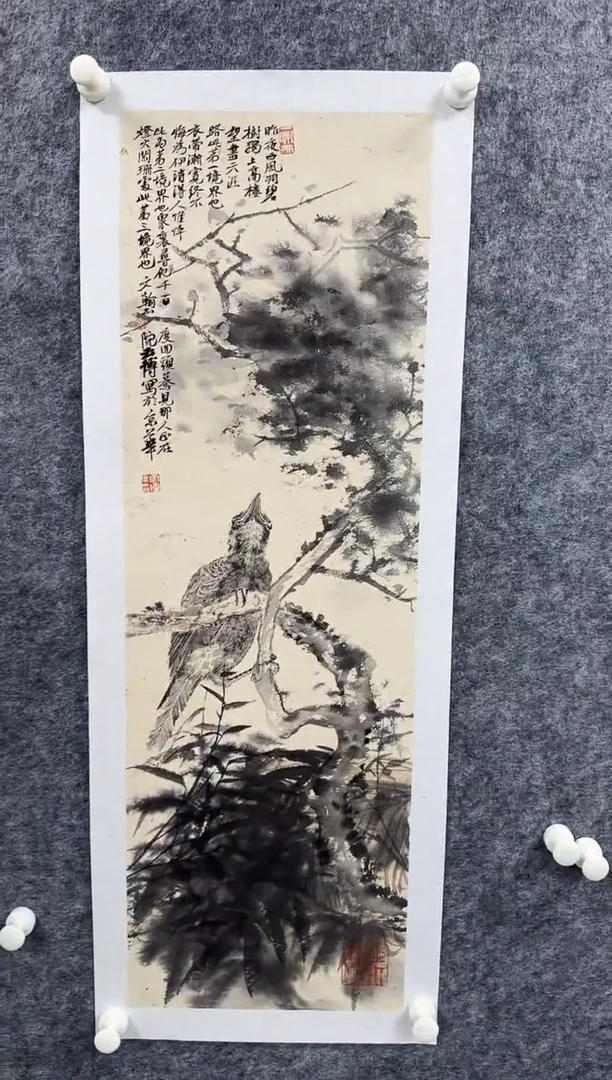 昨夜西風凋碧
樹獨上高樓
望盡天涯
路此第一境界也
衣帶漸寬終不
悔為伊消得人憔悴
此為第二境界也眾裏尋他千百度回頭驀見那人正在
燈火闌珊處此第三境界也 文翰 院 博寫於京華